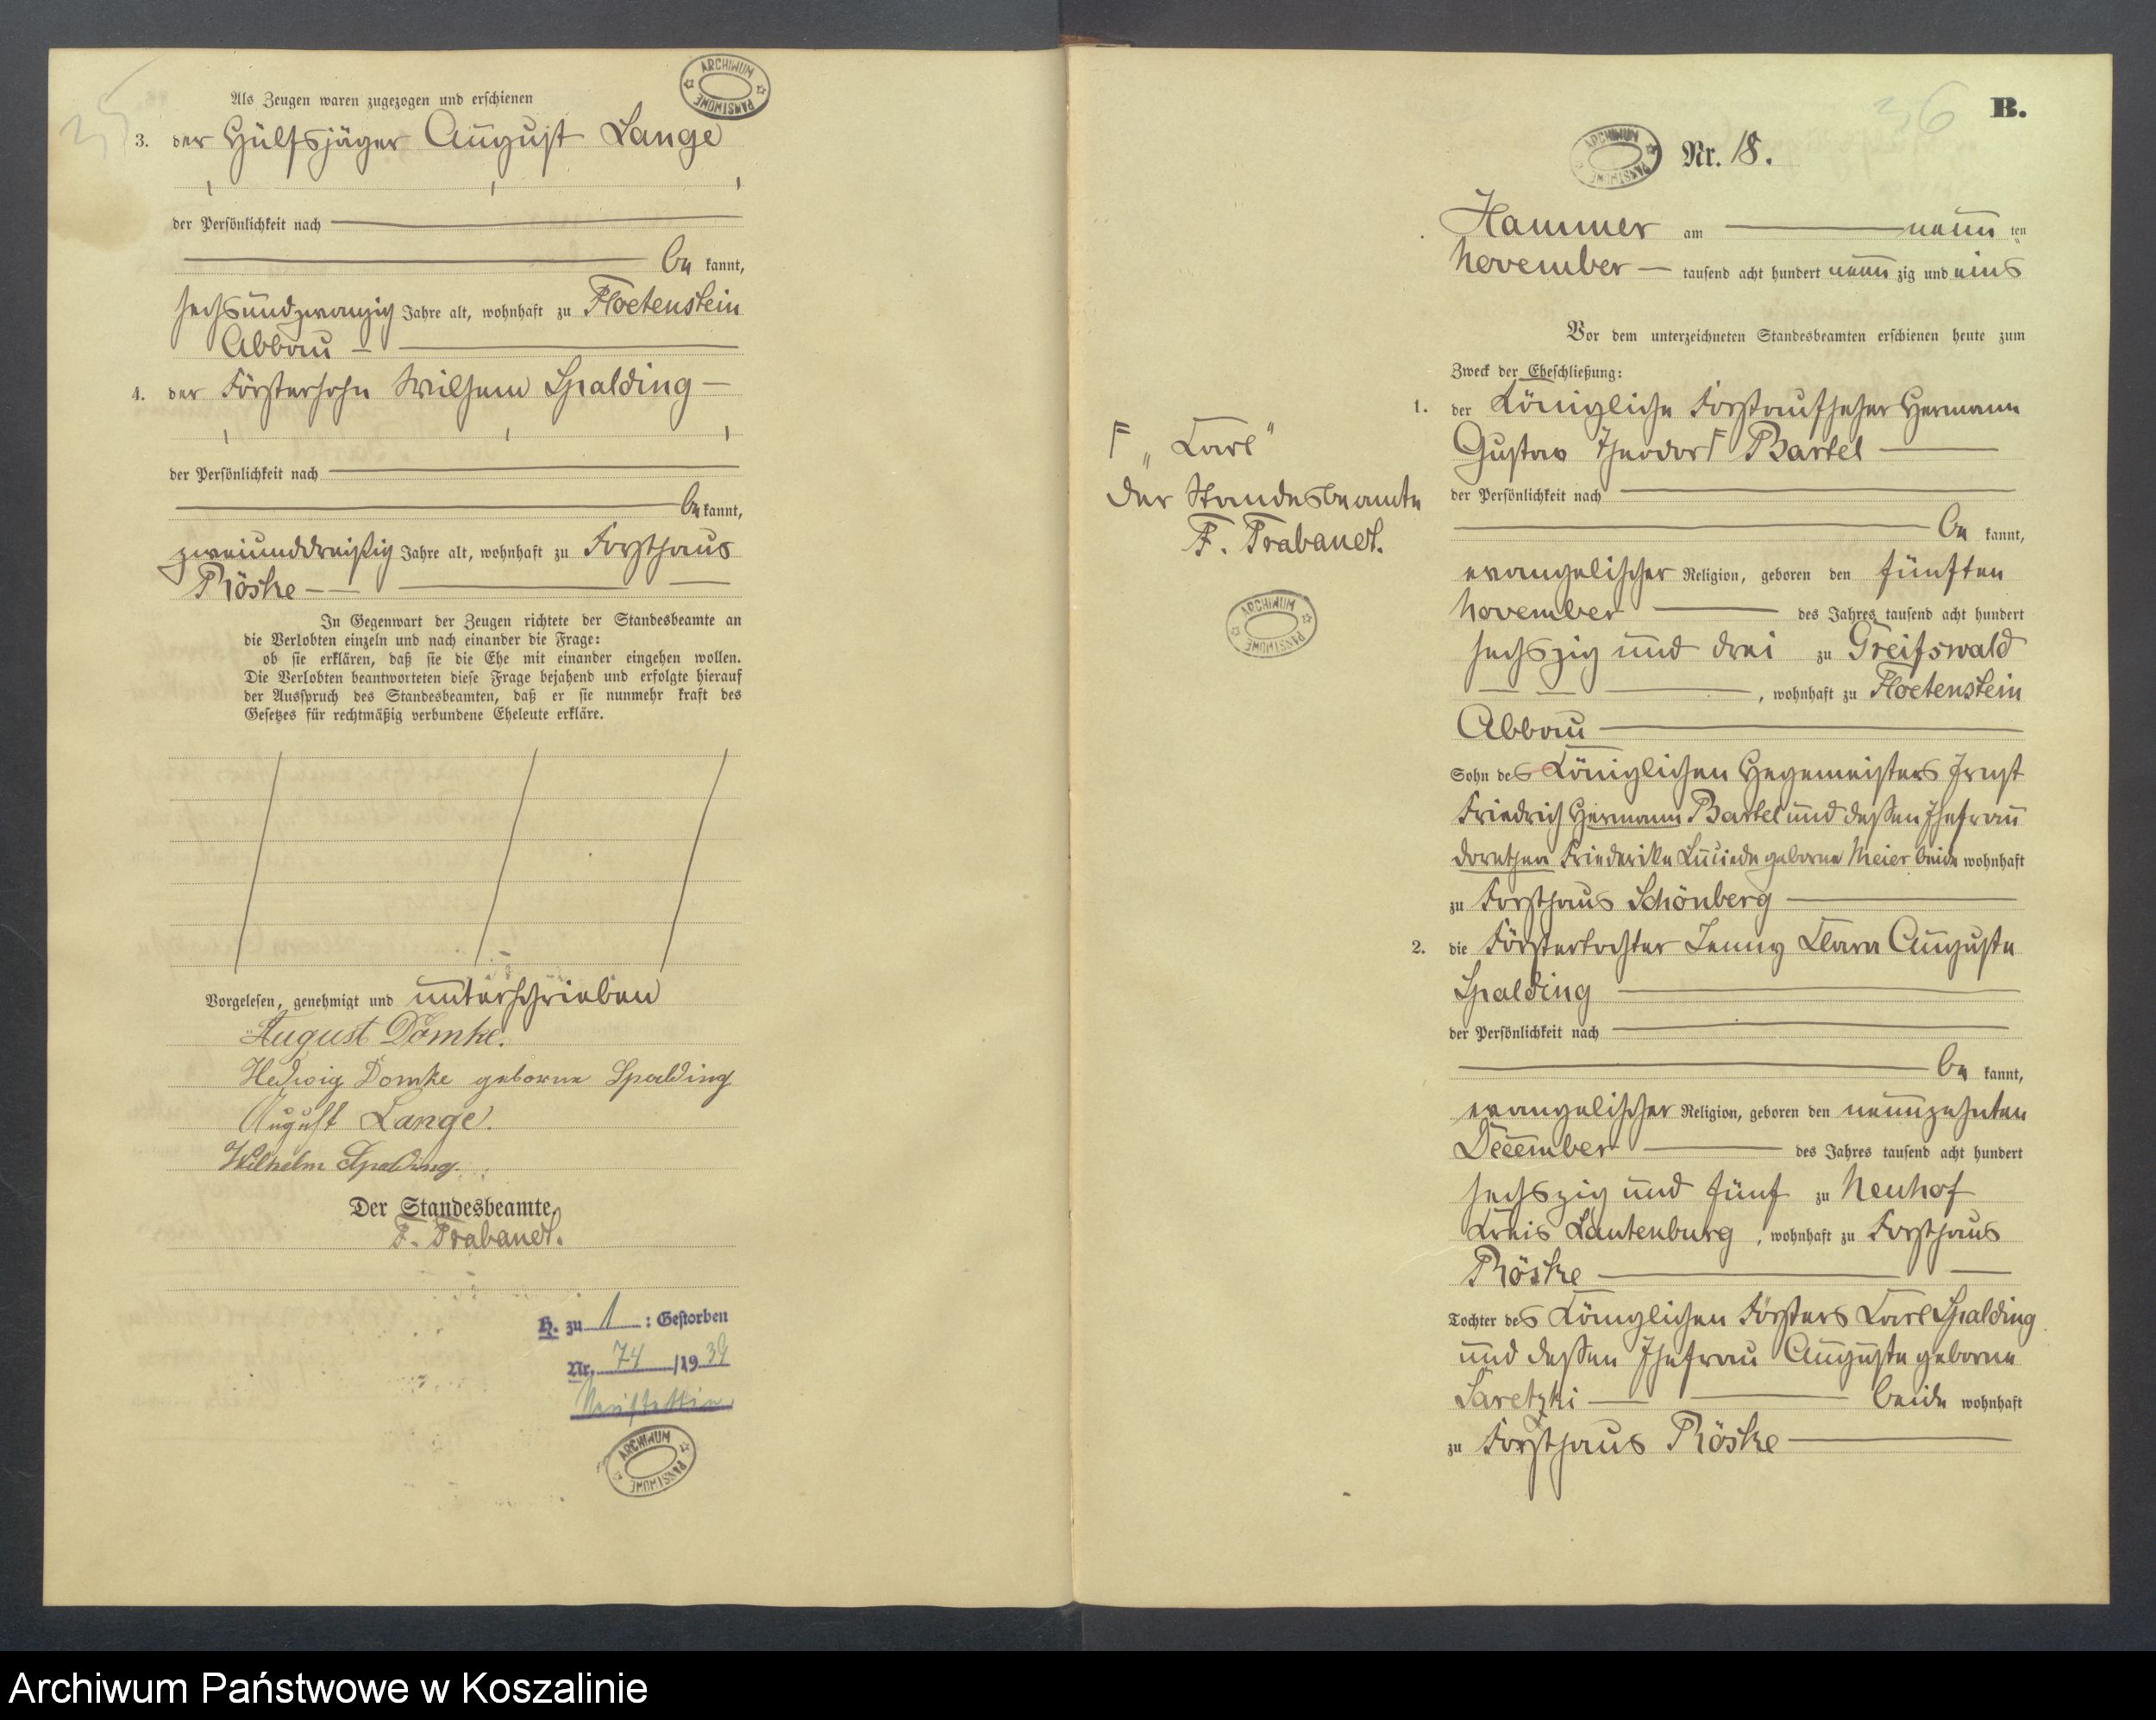 35
Als Zeugen waren zugezogen und erschienen
3. der Hülfsjäger August Lange
der Persönlichkeit nach
be kannt,
sechsundzwanzig Jahre alt, wohnhaft zu Floetenstein
Abbau
4. der Förstersohn Wilhem Spalding
der Persönlichkeit nach
be kannt,
zweiunddreißig Jahre alt, wohnhaft zu Forsthaus
Pöske
In Gegenwart der Zeugen richtete der Standesbeamte an
die Verlobten einzeln und nach einander die Frage:
ob sie erklären, daß sie die Ehe mit einander eingehen wollen.
Die Verlobten beantworteten diese Frage bejahend und erfolgte hierauf
der Ausspruch des Standesbeamten, daß er sie nunmehr kraft des
Gesetzes für rechtmäßig verbundene Eheleute erkläre.
Vorgelesen, genehmigt und unterschrieben
August Domke.
Hedwig Domke geborne Spalding
August Lange.
Wilhelm Spalding.
Der Standesbeamte.
F. Trabandt.
H. zu 1 : Gestorben
Nr. 74 /19 39
Neustettin
ARCHIWUM PAŃSTWOWE
36
B.
ARCHIWUM PAŃSTWOWE
Nr. 18.
Hammer am neun ten
November tausend acht hundert neun zig und eins
Vor dem unterzeichneten Standesbeamten erschienen heute zum
Zweck der Eheschließung:
1. der Königliche Forstaufseher Hermann
Gustav Theodor F Bartel
der Persönlichkeit nach
be kannt,
evangelischer Religion, geboren den fünften
November des Jahres tausend acht hundert
sechszig und drei zu Greifswald
, wohnhaft zu Floetenstein
Abbau
Sohn des Königlichen Hegemeisters Ernst
Friedrich Hermann Bartel und deßen Ehefrau
Dorothea Friederike geborne Meier beide wohnhaft
zu Forsthaus Schönberg
2. die Förstertochter Jenny Clara Auguste
Spalding
der Persönlichkeit nach
be kannt,
evangelischer Religion, geboren den neunzehnten
December des Jahres tausend acht hundert
sechszig und fünf zu Neuhof
Kreis Lautenburg, wohnhaft zu Forsthaus
Pöske
Tochter des Königlichen Försters Carl Spalding
und deßen Ehefrau Auguste geborne
Saretzki beide wohnhaft
zu Forsthaus Pöske
F „Carl“
Der Standesbeamte
F. Trabandt.
ARCHIWUM PAŃSTWOWE
Archiwum Państwowe w Koszalinie